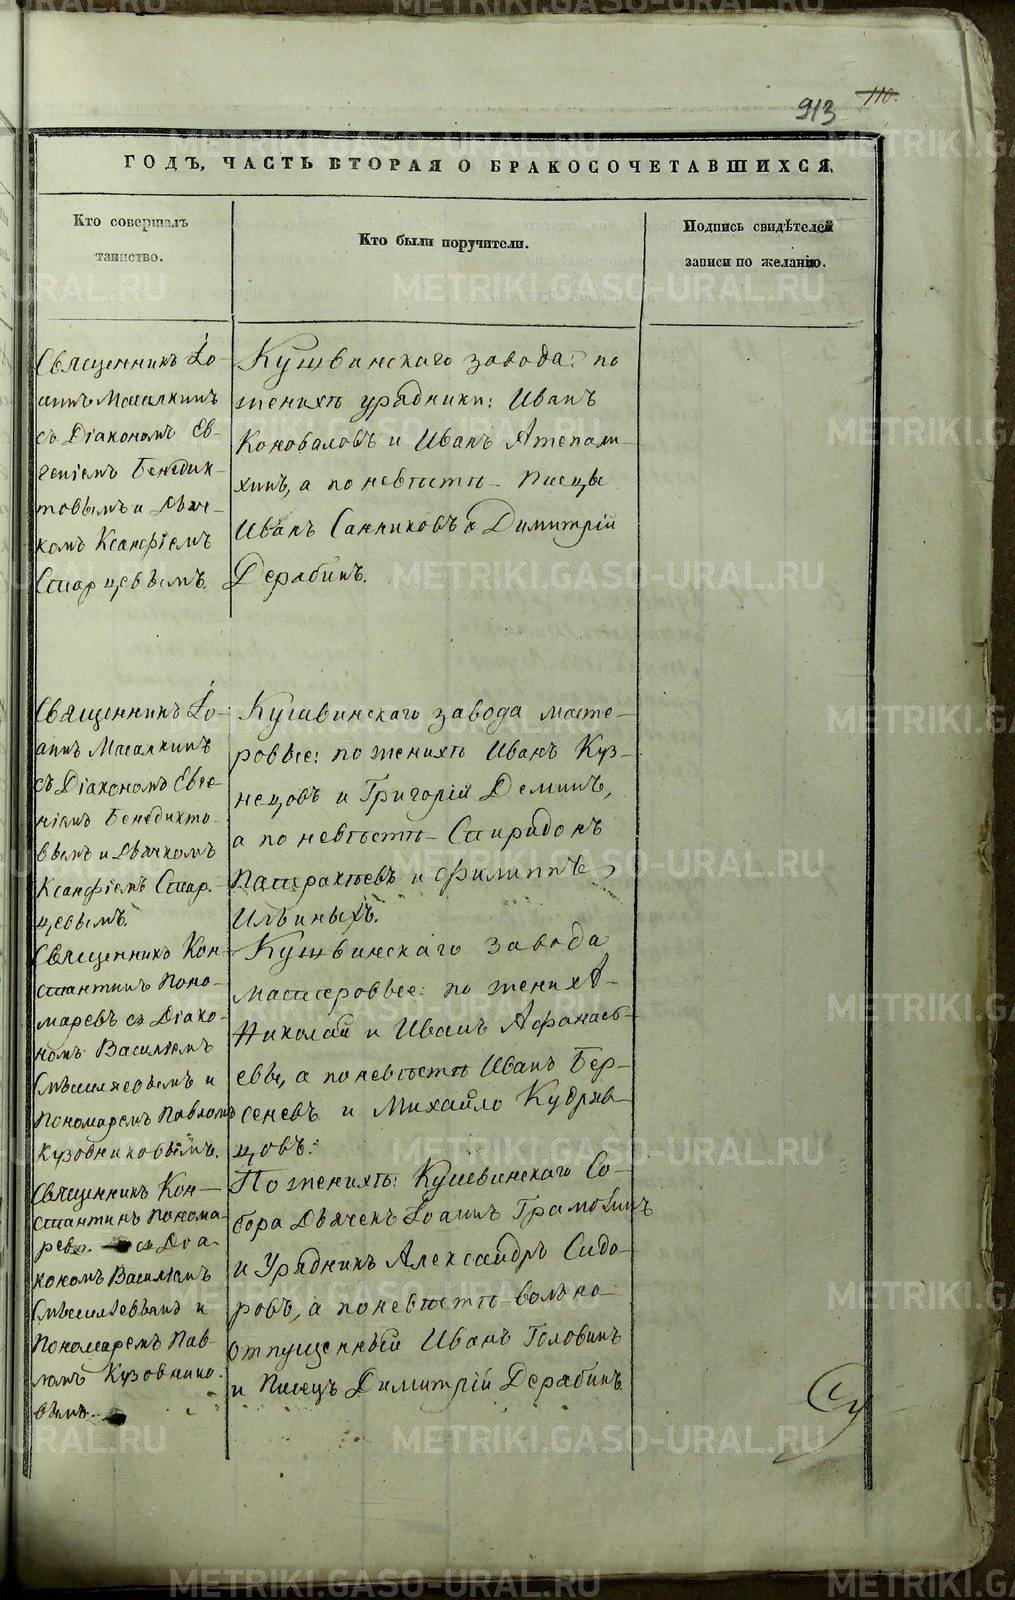 913 110.
ГОДЪ, ЧАСТЬ ВТОРАЯ О БРАКОСОЧЕТАВШИХСЯ.
Кто совершалъ
таинство.
Кто были поручители.
Подпись свидѣтелей
записи по желанію.
Священникъ Іо-
аннъ Масалкинъ
съ Діакономъ Ев-
геніемъ Бенедик-
товымъ и Дьяч-
комъ Ксанфіемъ
Старцевымъ.
Кушвинскаго завода: по
женихѣ урядники: Иванъ
Коноваловъ и Иванъ
а по невѣстѣ – Писцы
Иванъ Санниковъ и Димитрій
Дерябинъ.
Священникъ Іо-
аннъ Масалкинъ
съ Діакономъ Евге-
ніемъ Бенедикто-
вымъ и Дьячкомъ
Ксанфіемъ Стар-
цевымъ.
Кушвинскаго завода масте-
ровые: по женихѣ Иванъ Куз-
нецовъ и Григорій Деминъ,
а по невѣстѣ – Спиридонъ
и Филиппъ
Ильиныхъ.
Священникъ Кон-
стантинъ Поно-
маревъ съ Діако-
номъ Василіемъ
и
Пономаремъ Павломъ
Кузовниковымъ.
Кушвинскаго завода
мастеровые: по жениху
Николай и Иванъ Афанась-
евы, а по невѣстѣ Иванъ Бер-
сеневъ и Михайло Кудряв-
цовъ.
Священникъ Кон-
стантинъ Понома-
ревъ съ Діа-
кономъ Василіемъ
и
Пономаремъ Пав-
ломъ Кузовнико-
вымъ.
По женихѣ: Кушвинскаго Со-
бора Дьячекъ Іоаннъ Грамолинъ
и Урядникъ Александръ Сидо-
ровъ, а по невѣстѣ – вольно
отпущенный Иванъ Головинъ
и Писецъ Димитрій Дерябинъ.
METRIKI.GASO-URAL.RU